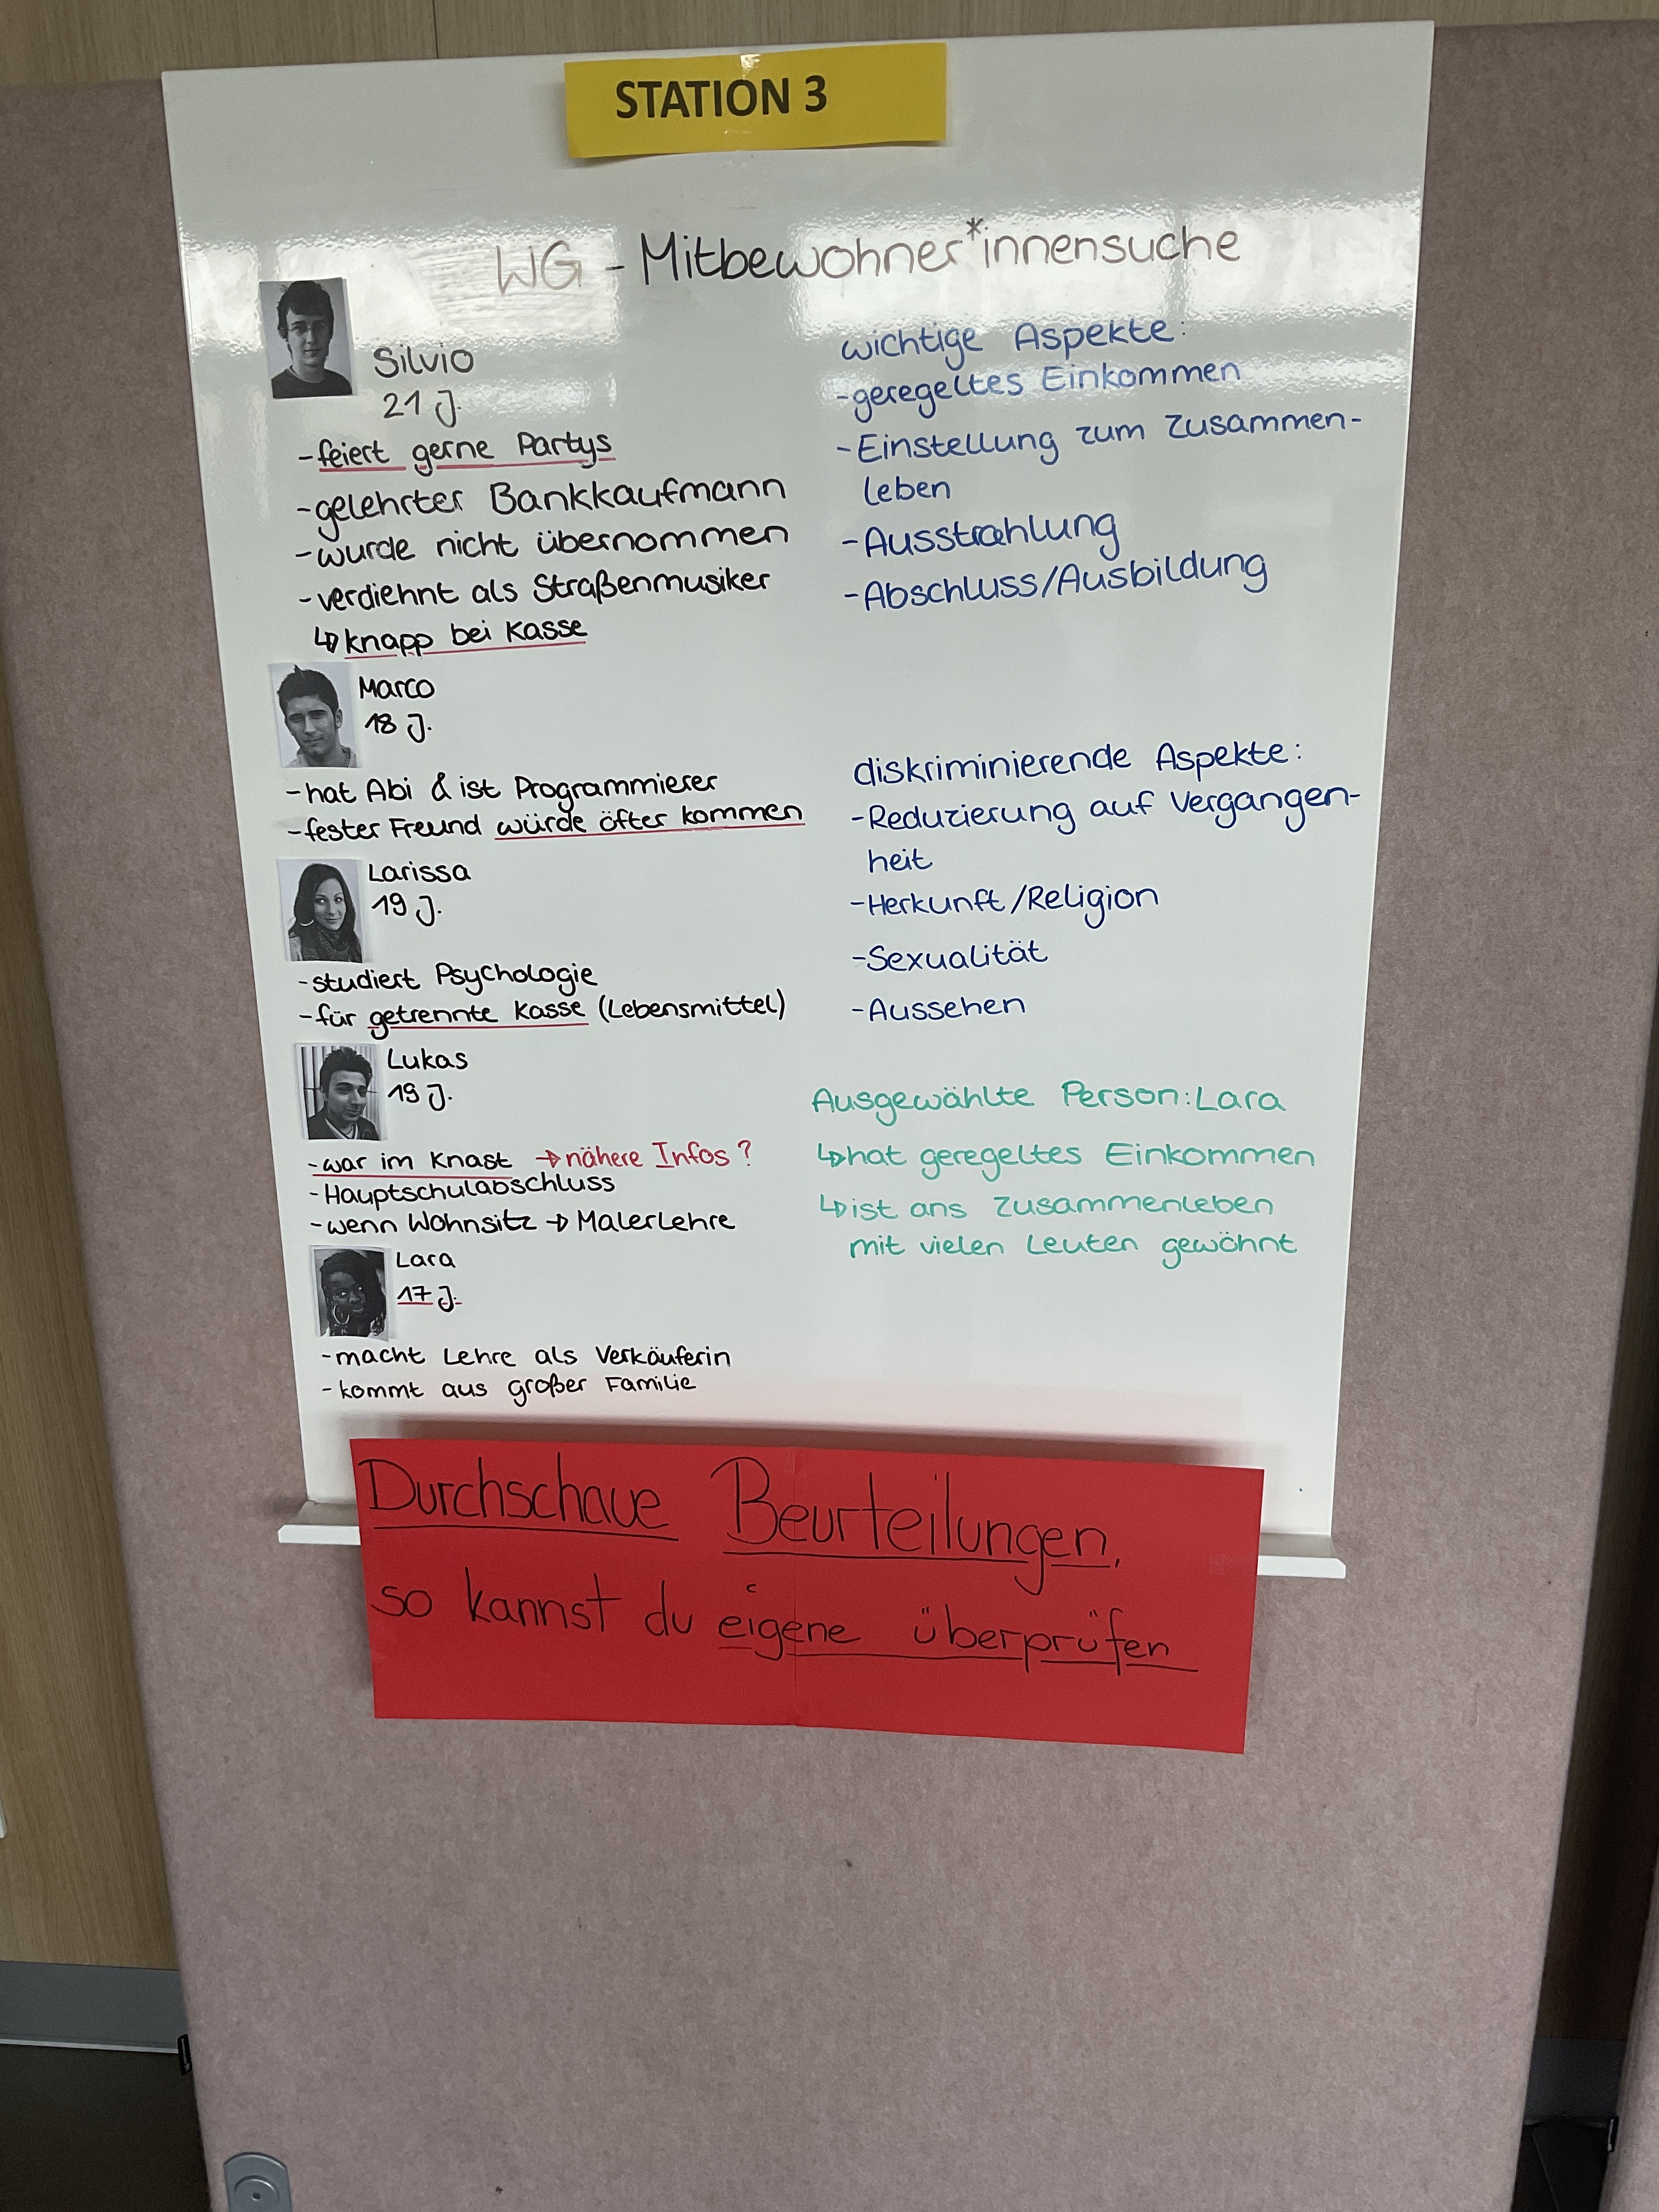 STATION 3
WG - Mitbewohner*innensuche
Silvio
21 J.
-feiert gerne Partys
-gelehrter Bankkaufmann
-wurde nicht übernommen
-verdiehnt als Straßenmusiker
↳knapp bei Kasse
Marco
18 J.
-hat Abi & ist Programmierer
-fester Freund würde öfter kommen
Larissa
19 J.
-studiert Psychologie
-für getrennte Kasse (Lebensmittel)
Lukas
19 J.
-war im Knast → nähere Infos?
-Hauptschulabschluss
-wenn Wohnsitz → Malerlehre
Lara
17 J.
-macht Lehre als Verkäuferin
-kommt aus großer Familie
wichtige Aspekte:
-geregeltes Einkommen
-Einstellung zum Zusammen-
leben
-Ausstrahlung
-Abschluss/Ausbildung
diskriminierende Aspekte:
-Reduzierung auf Vergangen-
heit
-Herkunft/Religion
-Sexualität
-Aussehen
Ausgewählte Person: Lara
↳hat geregeltes Einkommen
↳ist ans Zusammenleben
mit vielen Leuten gewöhnt
Durchschaue Beurteilungen,
so kannst du eigene überprüfen